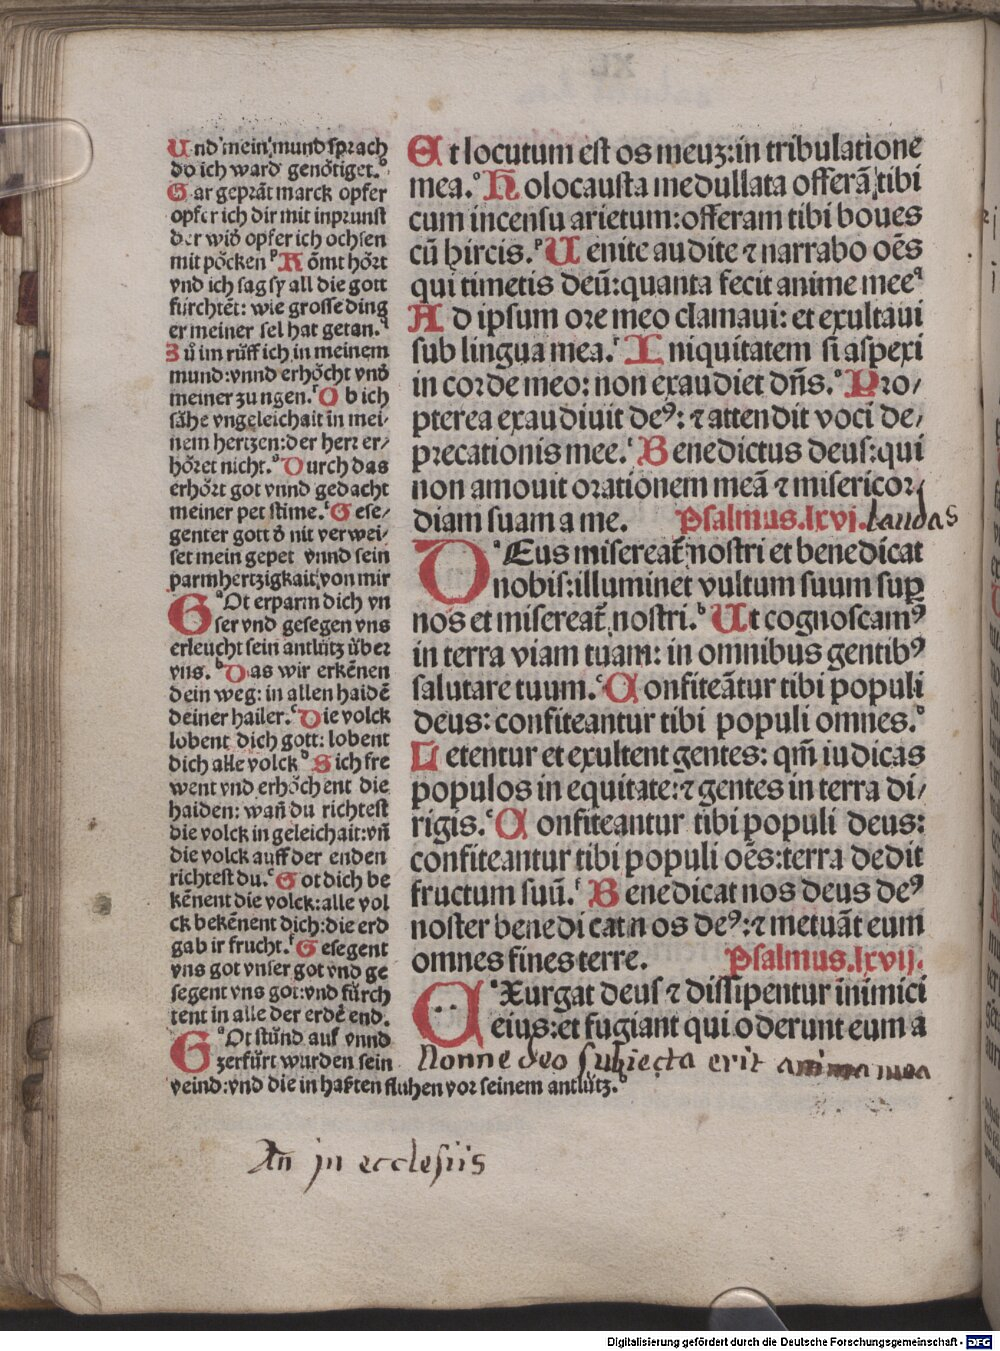 Und mein mund sprach
do ich ward genötiget.
Gar gepzāt marck opfer
opfer ich dir mit inprunst
der wiđ opfer ich ochsen
mit pöcken Kömt hözt
vnd ich sag sy all die gott
fürchtēt: wie grosse ding
er meiner sel hat getan.
Zů im rüff ich in meinem
mund: vnnd erhöcht vnđ
meiner zungen. Ob ich
sähe vngeleichait in mei/
nem hertzen: der herr er/
höret nicht. Durch das
erhözt got vnnd gedacht
meiner pet stime. Gese/
genter gott đ nit verwei/
set mein gepet vnnd sein
parmhertzigkait von mir
GOt erparm dich vn
ser vnd gesegen vns
erleucht sein antlütz über
vns. Das wir erkēnen
dein weg: in allen haidē
deiner hailer. Die volck
lobent dich gott: lobent
dich alle volck Sich fre
went vnd erhöchent die
haiden: wañ du richtest
die volck in geleichait: vñ
die volck auff der enden
richtest du. Got dich be
kēnent die volck: alle vol
ck bekēnent dich: die erd
gab ir frucht. Gesegent
vns got vnser got vnd ge
segent vns got: vnd fürch
tent in alle der erdē end.
GOt stünd auf vnnd
zerfürt wurden sein
veind: vnd die in haßten fluhen vor seinem antlütz.
Et locutum est os meuʒ: in tribulatione
mea. Holocausta medullata offerā tibi
cum incensu arietum: offeram tibi boues
cū hircis. Uenite audite ⁊ narrabo oēs
qui timetis deū: quanta fecit anime mee
Ad ipsum ore meo clamaui: et exultaui
sub lingua mea. Iniquitatem si aspexi
in corde meo: non exaudiet dñs. Pro/
pterea exaudiuit deꝰ: ⁊ attendit voci de/
precationis mee. Benedictus deus: qui
non amouit orationem meā ⁊ misericor/
diam suam a me. Psalmus.lxvi. laudas
DEus misereat nostri et benedicat
nobis: illuminet vultum suum suꝑ
nos et misereat nostri. Ut cognoscamꝰ
in terra viam tuam: in omnibus gentibꝰ
salutare tuum. Confiteātur tibi populi
deus: confiteantur tibi populi omnes.
Letentur et exultent gentes: qm̄ iudicas
populos in equitate: ⁊ gentes in terra di/
rigis. Confiteantur tibi populi deus:
confiteantur tibi populi oēs: terra dedit
fructum suū. Benedicat nos deus deꝰ
noster benedicat nos deꝰ: ⁊ metuāt eum
omnes fines terre. Psalmus.lxvij.
EXurgat deus ⁊ dissipentur inimici
eius: et fugiant qui oderunt eum a
Nonne deo subiecta erit anima mea
An in ecclesiis
Digitalisierung gefördert durch die Deutsche Forschungsgemeinschaft - DFG